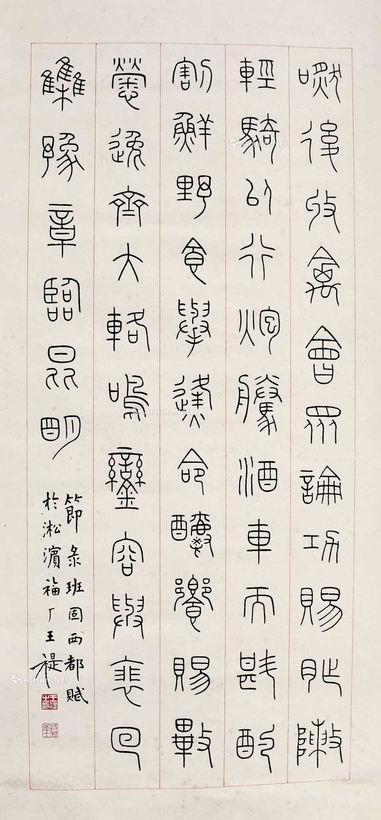 嘫後收禽會眾論功賜胙敶
輕騎以行炮騰酒車而斟酌
割鮮野食舉逢命釂饗賜畢
勞逸齊大輅鳴鑾容與裴回
集豫章臨昆明
節彔班固西都賦
於淞濱福厂王禔